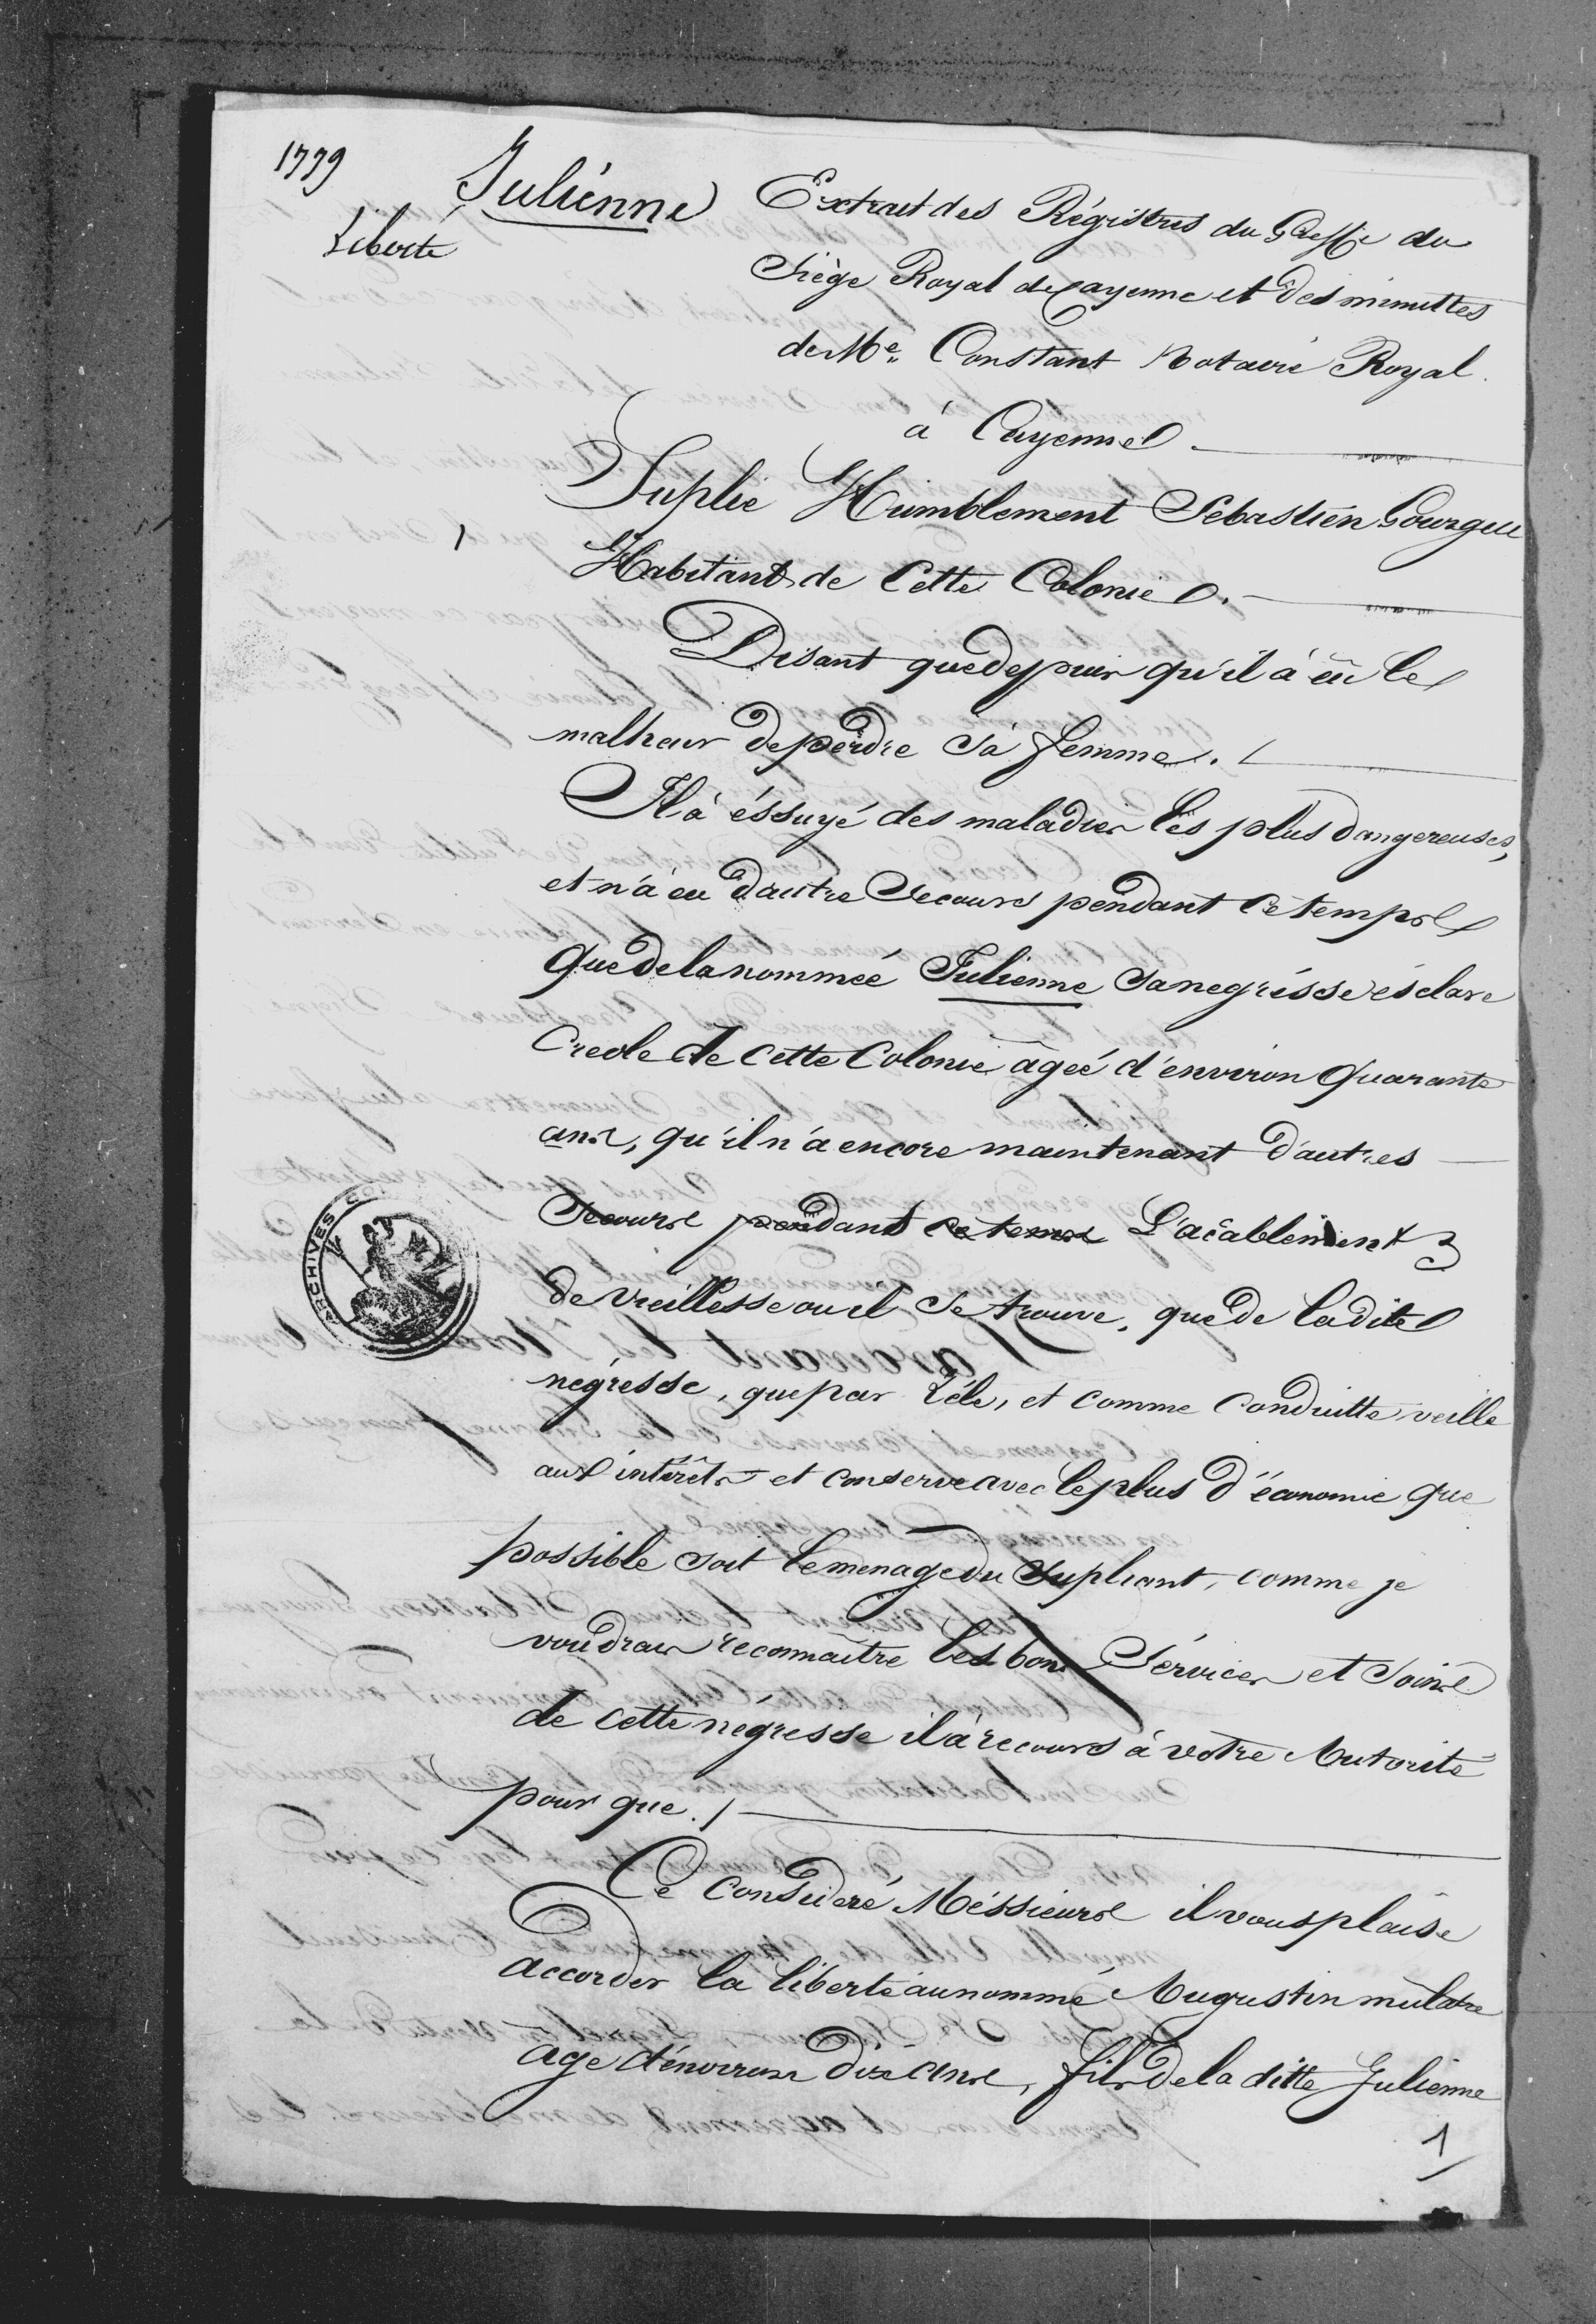 1779
Liberté
Juliénne
Extrait des Régistres du Greffe du
Siège Royal de Cayenne et des minuttes
de Me. Constant Notaire Royal
à Cayenne
Suplie Humblement Sébastien Gourgue
1
Habitant de Cette Colonie.
Disant que depuis qu'il à eû le
malheur de perdre sa femme./
Il à éssuyé des maladies les plus dangereuses,
et n'a eu d'autre Secours pendant ce temps
que de la nommée Julienne sa negrésse ésclave
Creole de cette Colonie âgée d'environ Quarante
ans, qu'il n'a encore maintenant d'autres
Secours pendant ce temps L'acablement
de vieillesse ou il se trouve, que de ladite
négresse, que par Zéle, et comme conduitte veille
aux intérêts et conserve avec le plus d'économie que
possible soit le menage du Supliant, comme je
voudrais reconnaître les bons Sérvices et Soins
de cette négresse il à recours à votre Autorité
pour que./
Ce Consideré Méssieurs il vous plaise
accorder la liberté au nommé Augustin mulatre
age d'énviron dix ans, fils de la ditte Julienne
1
ARCHIVES CO